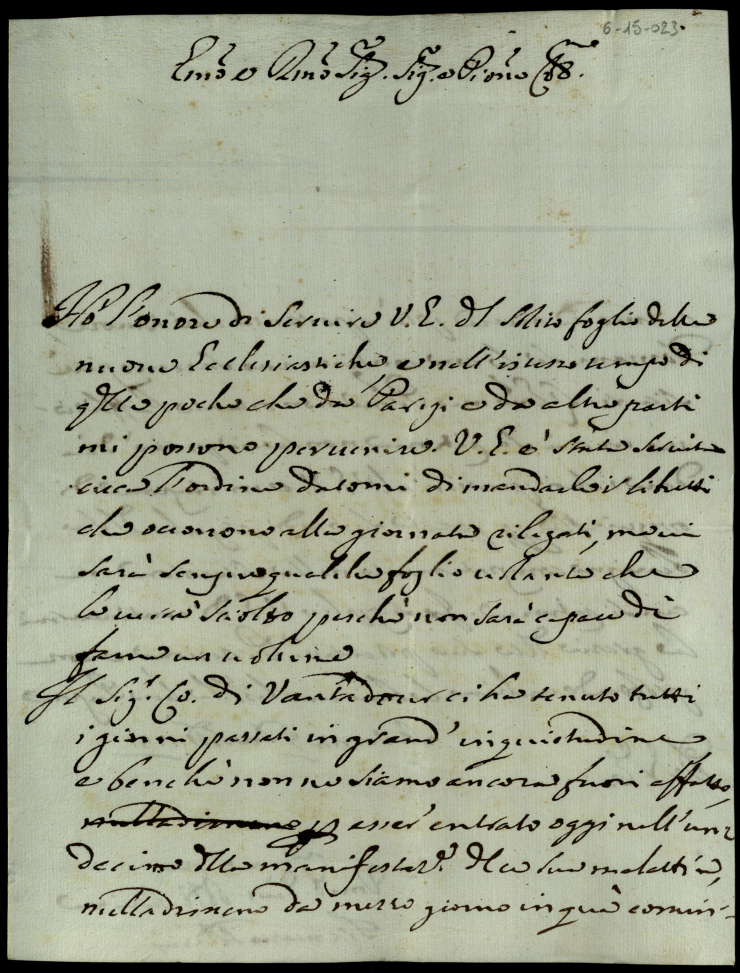 6-15-023.
Emo e Rmo Sig. Sig. e Prone
Hò l'onore di servire V. E. del solito foglio delle
nuove Ecclesiastiche e nell'istesso tempo di
qlle poche che da Parigi e da altre parti
mi possono pervenire. V. E. è stata servita
circa l'ordine datomi di mandarle i libretti
che occorrono alla giornata rilegati, ma vi
sarà sempre qualche foglio volante che
le verrà sciolto perchè non sarà capace di
farne un volume
Il Sigr. Co. di Vantadour ci ha tenuto tutti
i giorni passati in grand' inquietudine
e benchè non ne siamo ancora fuori affatto,
nulladimeno p esser entrato oggi nell'un-
decimo dlla manifestaz.e dlla sua malattia,
nulladimeno da mezzo giorno in quà comin-